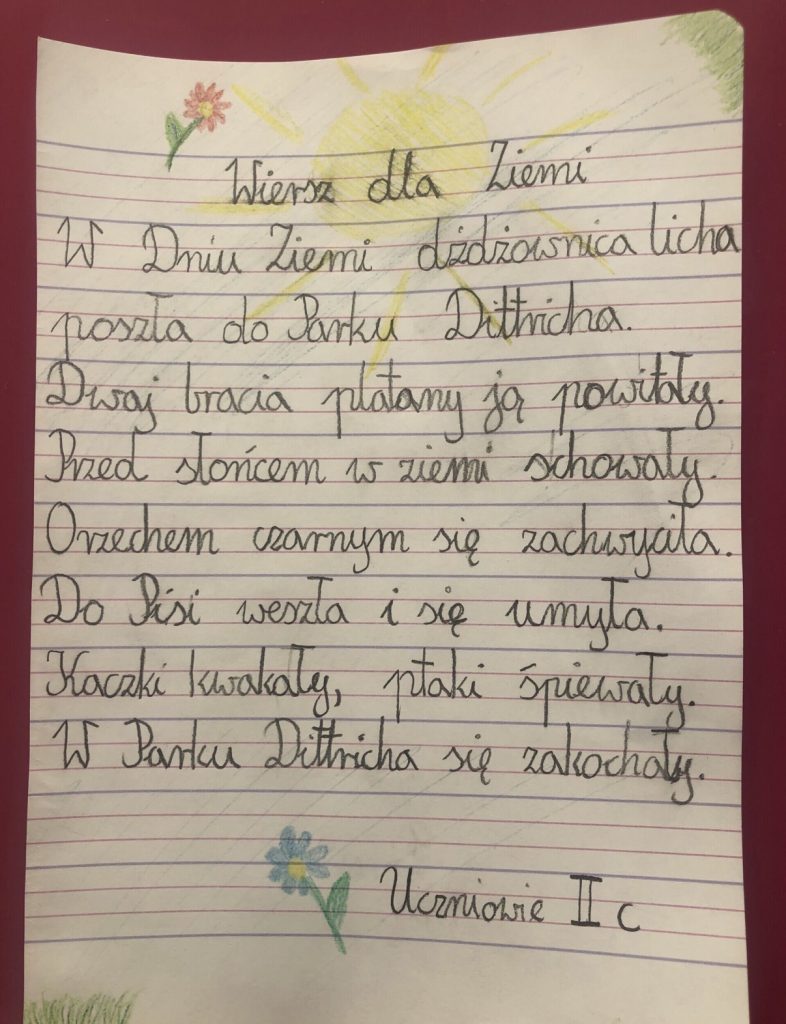 Wiersz dla Ziemi
W Dniu Ziemi dżdżownica licha
poszła do Parku Dittricha.
Dwaj bracia platany ją powitały.
Przed słońcem w ziemi schowały.
Orzechem czarnym się zachwyciła.
Do Pisi weszła i się umyła.
Kaczki kwakały, ptaki śpiewały.
W Parku Dittricha się zakochały.
Uczniowie II c